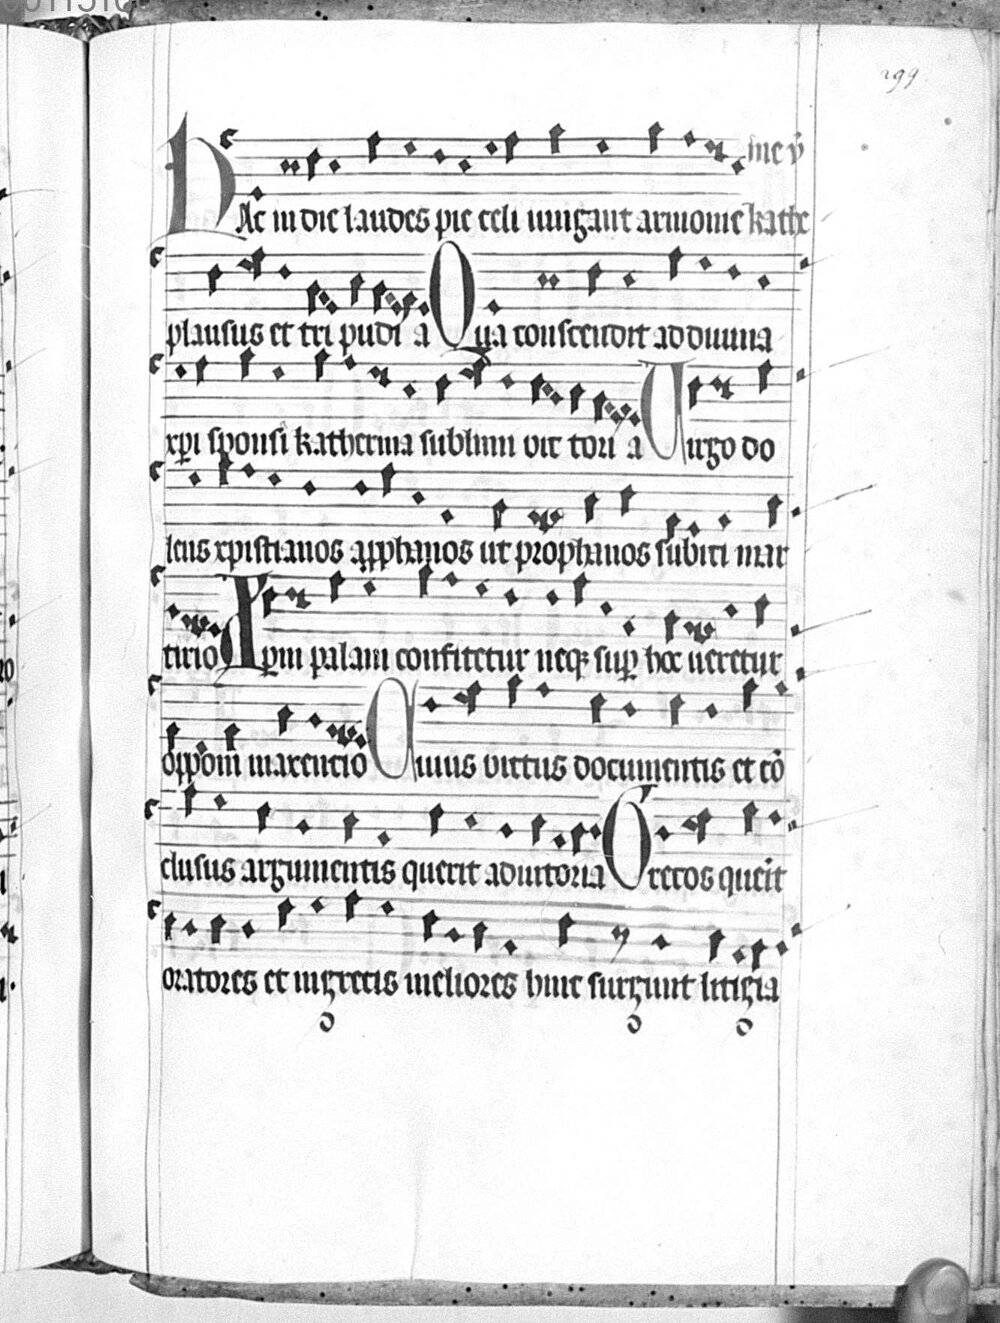 299
Hac in die laudes pie celi iungant armonie kathe
rine ỹ
plausus et tri pudi a Qua conscendit ad diuina
xp̄i sponsi katherina sublimi vic tori a Uirgo do
lens xp̄istianos app̄hanos ut prophanos subici mar
tirio Xp̄m palam confitetur neq; sup̄ hoc ueretur
opponi maxencio Cuius victus documentis et cō
clusus argumentis querit adiutoria Grecos querit
oratores et ingrecis meliores hinc surgunt litigia